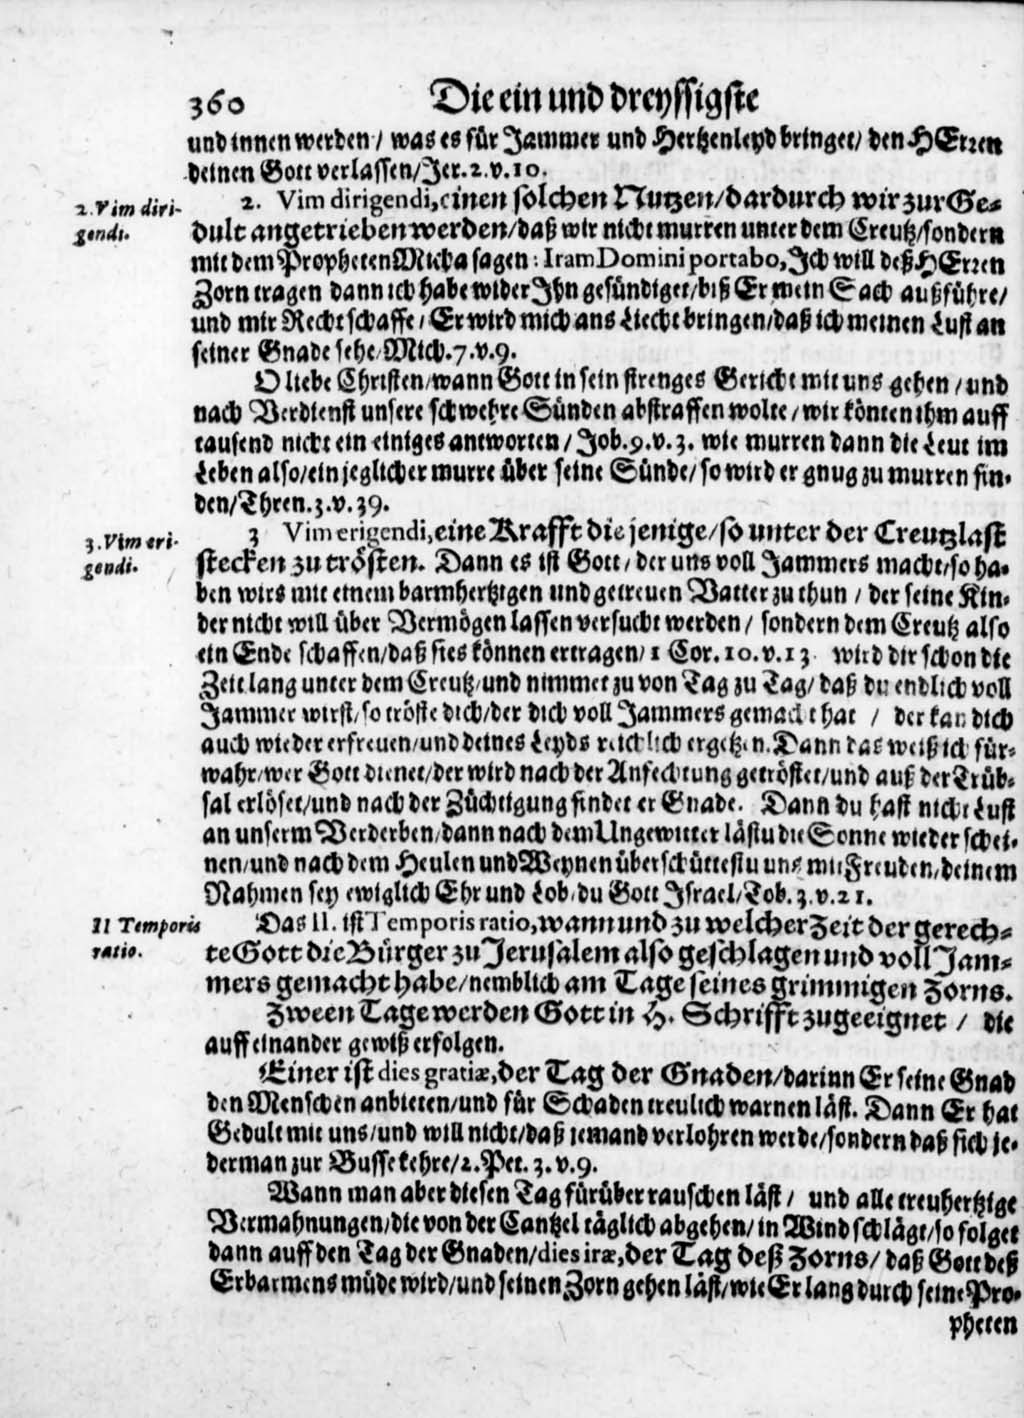 360 Die ein und dreyssigste
und innen werden / was es für Jammer und Hertzenleyd bringet / den HErren
deinen Gott verlassen / Jer. 2. v. 10.
2. Vim diri-
gendi.
2. Vim dirigendi, einen solchen Nutzen / dardurch wir zur Ge-
dult angetrieben werden / daß wir nicht murren unter dem Creutz / sondern
mit dem Propheten Micha sagen : Iram Domini portabo, Ich will deß HErren
Zorn tragen dann ich habe wider Ihn gesündiget / biß Er mein Sach außführe /
und mir Recht schaffe / Er wird mich ans Liecht bringen / daß ich meinen Lust an
seiner Gnade sehe / Mich. 7. v. 9.
O liebe Christen / wann Gott in sein strenges Gericht mit uns gehen / und
nach Verdienst unsere schwehre Sünden abstraffen wolte / wir könten ihm auff
tausend nicht ein einiges antworten / Job. 9. v. 3. wie murren dann die Leut im
Leben also / ein jeglicher murre über seine Sünde / so wird er gnug zu murren fin-
den / Thren. 3. v. 39.
3. Vim eri-
gendi.
3 Vim erigendi, eine Krafft die jenige / so unter der Creutzlast
stecken zu trösten. Dann es ist Gott / der uns voll Jammers macht / so ha-
ben wirs mit einem barmhertzigen und getreuen Vatter zu thun / der seine Kin-
der nicht will über Vermögen lassen versucht werden / sondern dem Creutz also
ein Ende schaffen / daß sies können ertragen / 1 Cor. 10. v. 13. wird dir schon die
Zeit lang unter dem Creutz / und nimmet zu von Tag zu Tag / daß du endlich voll
Jammer wirst / so tröste dich / der dich voll Jammers gemacht hat / der kan dich
auch wieder erfreuen / und deines Leyds reichlich ergetzen. Dann das weiß ich für-
wahr / wer Gott dienet / der wird nach der Anfechtung getröstet / und auß der Trüb-
sal erlöset / und nach der Züchtigung findet er Gnade. Dann du hast nicht Lust
an unserm Verderben / dann nach dem Ungewitter lästu die Sonne wieder schei-
nen / und nach dem Heulen und Weynen überschüttestu uns mit Freuden / deinem
Nahmen sey ewiglich Ehr und Lob / du Gott Israel / Tob. 3. v. 21.
II Temporis
ratio.
Das II. ist Temporis ratio, wann und zu welcher Zeit der gerech-
te Gott die Bürger zu Jerusalem also geschlagen und voll Jam-
mers gemacht habe / nemblich am Tage seines grimmigen Zorns.
Zween Tage werden Gott in H. Schrifft zugeeignet / die
auff einander gewiß erfolgen.
Einer ist dies gratiæ, der Tag der Gnaden / darinn Er seine Gnad
den Menschen anbieten / und für Schaden treulich warnen läst. Dann Er hat
Gedult mit uns / und will nicht / daß jemand verlohren werde / sondern daß sich je-
derman zur Busse kehre / 2. Pet. 3. v. 9.
Wann man aber diesen Tag fürüber rauschen läst / und alle treuhertzige
Vermahnungen / die von der Cantzel täglich abgehen / in Wind schlägt / so folget
dann auff den Tag der Gnaden / dies iræ, der Tag deß Zorns / daß Gott deß
Erbarmens müde wird / und seinen Zorn gehen läst / wie Er lang durch seine Pro-
pheten